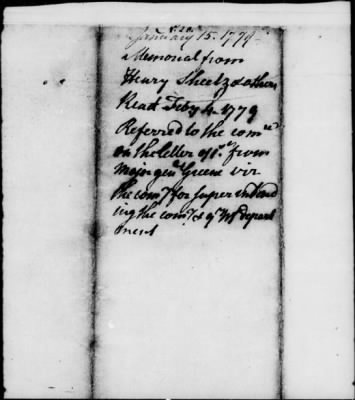 January 15. 1779
Memorial from
Henry Sheetz & others
Read Feby 4. 1779
Referred to the comee
on the letter of 1st from
Major genl Greene viz
the comee for superintend
ing the comy & qr Mr depart
ment